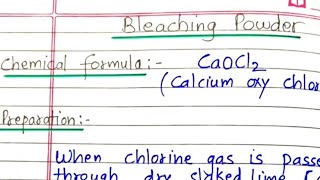 Bleaching Powder
Chemical formula:- CaOCl2
(Calcium oxy chlor
Preparation:-
When chlorine gas is passe
through dry slaked lime